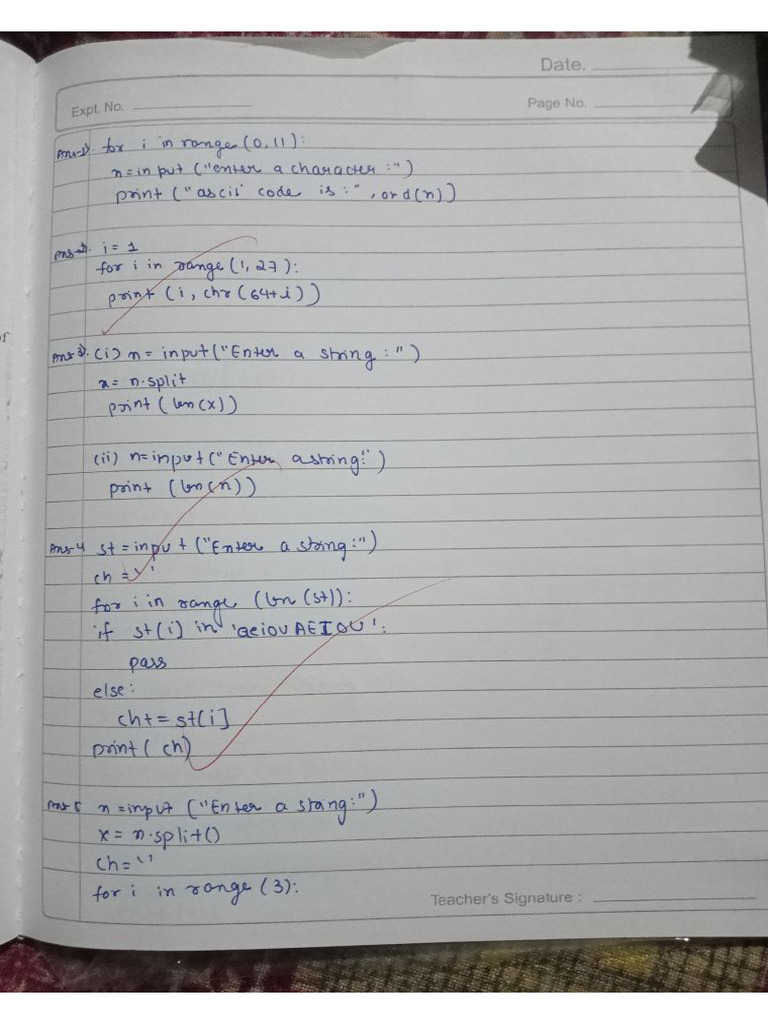 Date.
Expt. No.
Page No.
Ans-1). for i in range (0,11):
n=input ("enter a character :")
print ("ascii code is :", ord(n))
Ans-2). i = 1
for i in range (1, 27):
print (i, chr (64+i))
Ans 3). (i) n= input ("Enter a string : ")
x= n.split
print (len(x))
(ii) n=input ("Enter a string:")
print (len(n))
Ans-4 st =input ("Enter a string:")
ch = ' '
for i in range (len (st)):
if st[i] in 'aeiouAEIOU':
pass
else:
ch+= st[i]
print ( ch)
Ans 5 n =input ("Enter a string:")
x= n.split()
ch= ' '
for i in range (3):
Teacher's Signature :